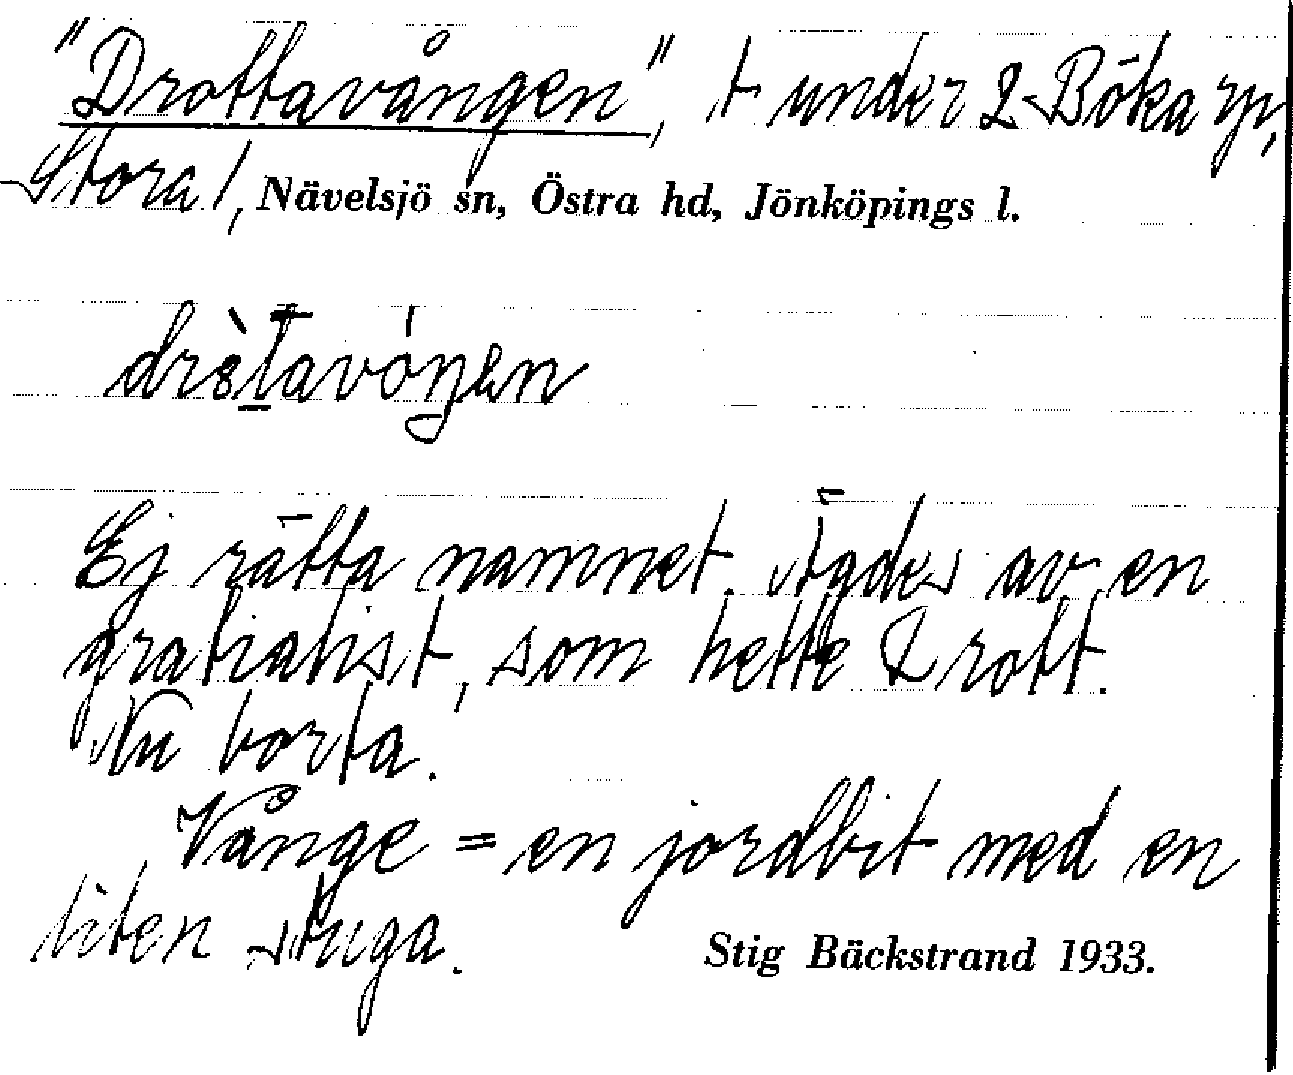 "Drottavången", t under 2 Bökaryr,
Stora/, Nävelsjö sn, Östra hd, Jönköpings l.
Ej rätta namnet. Ägdes av en
gratialist, som hette Drott.
Nu borta.
Vånge = en jordbit med en
liten stuga.
Stig Bäckstrand 1933.